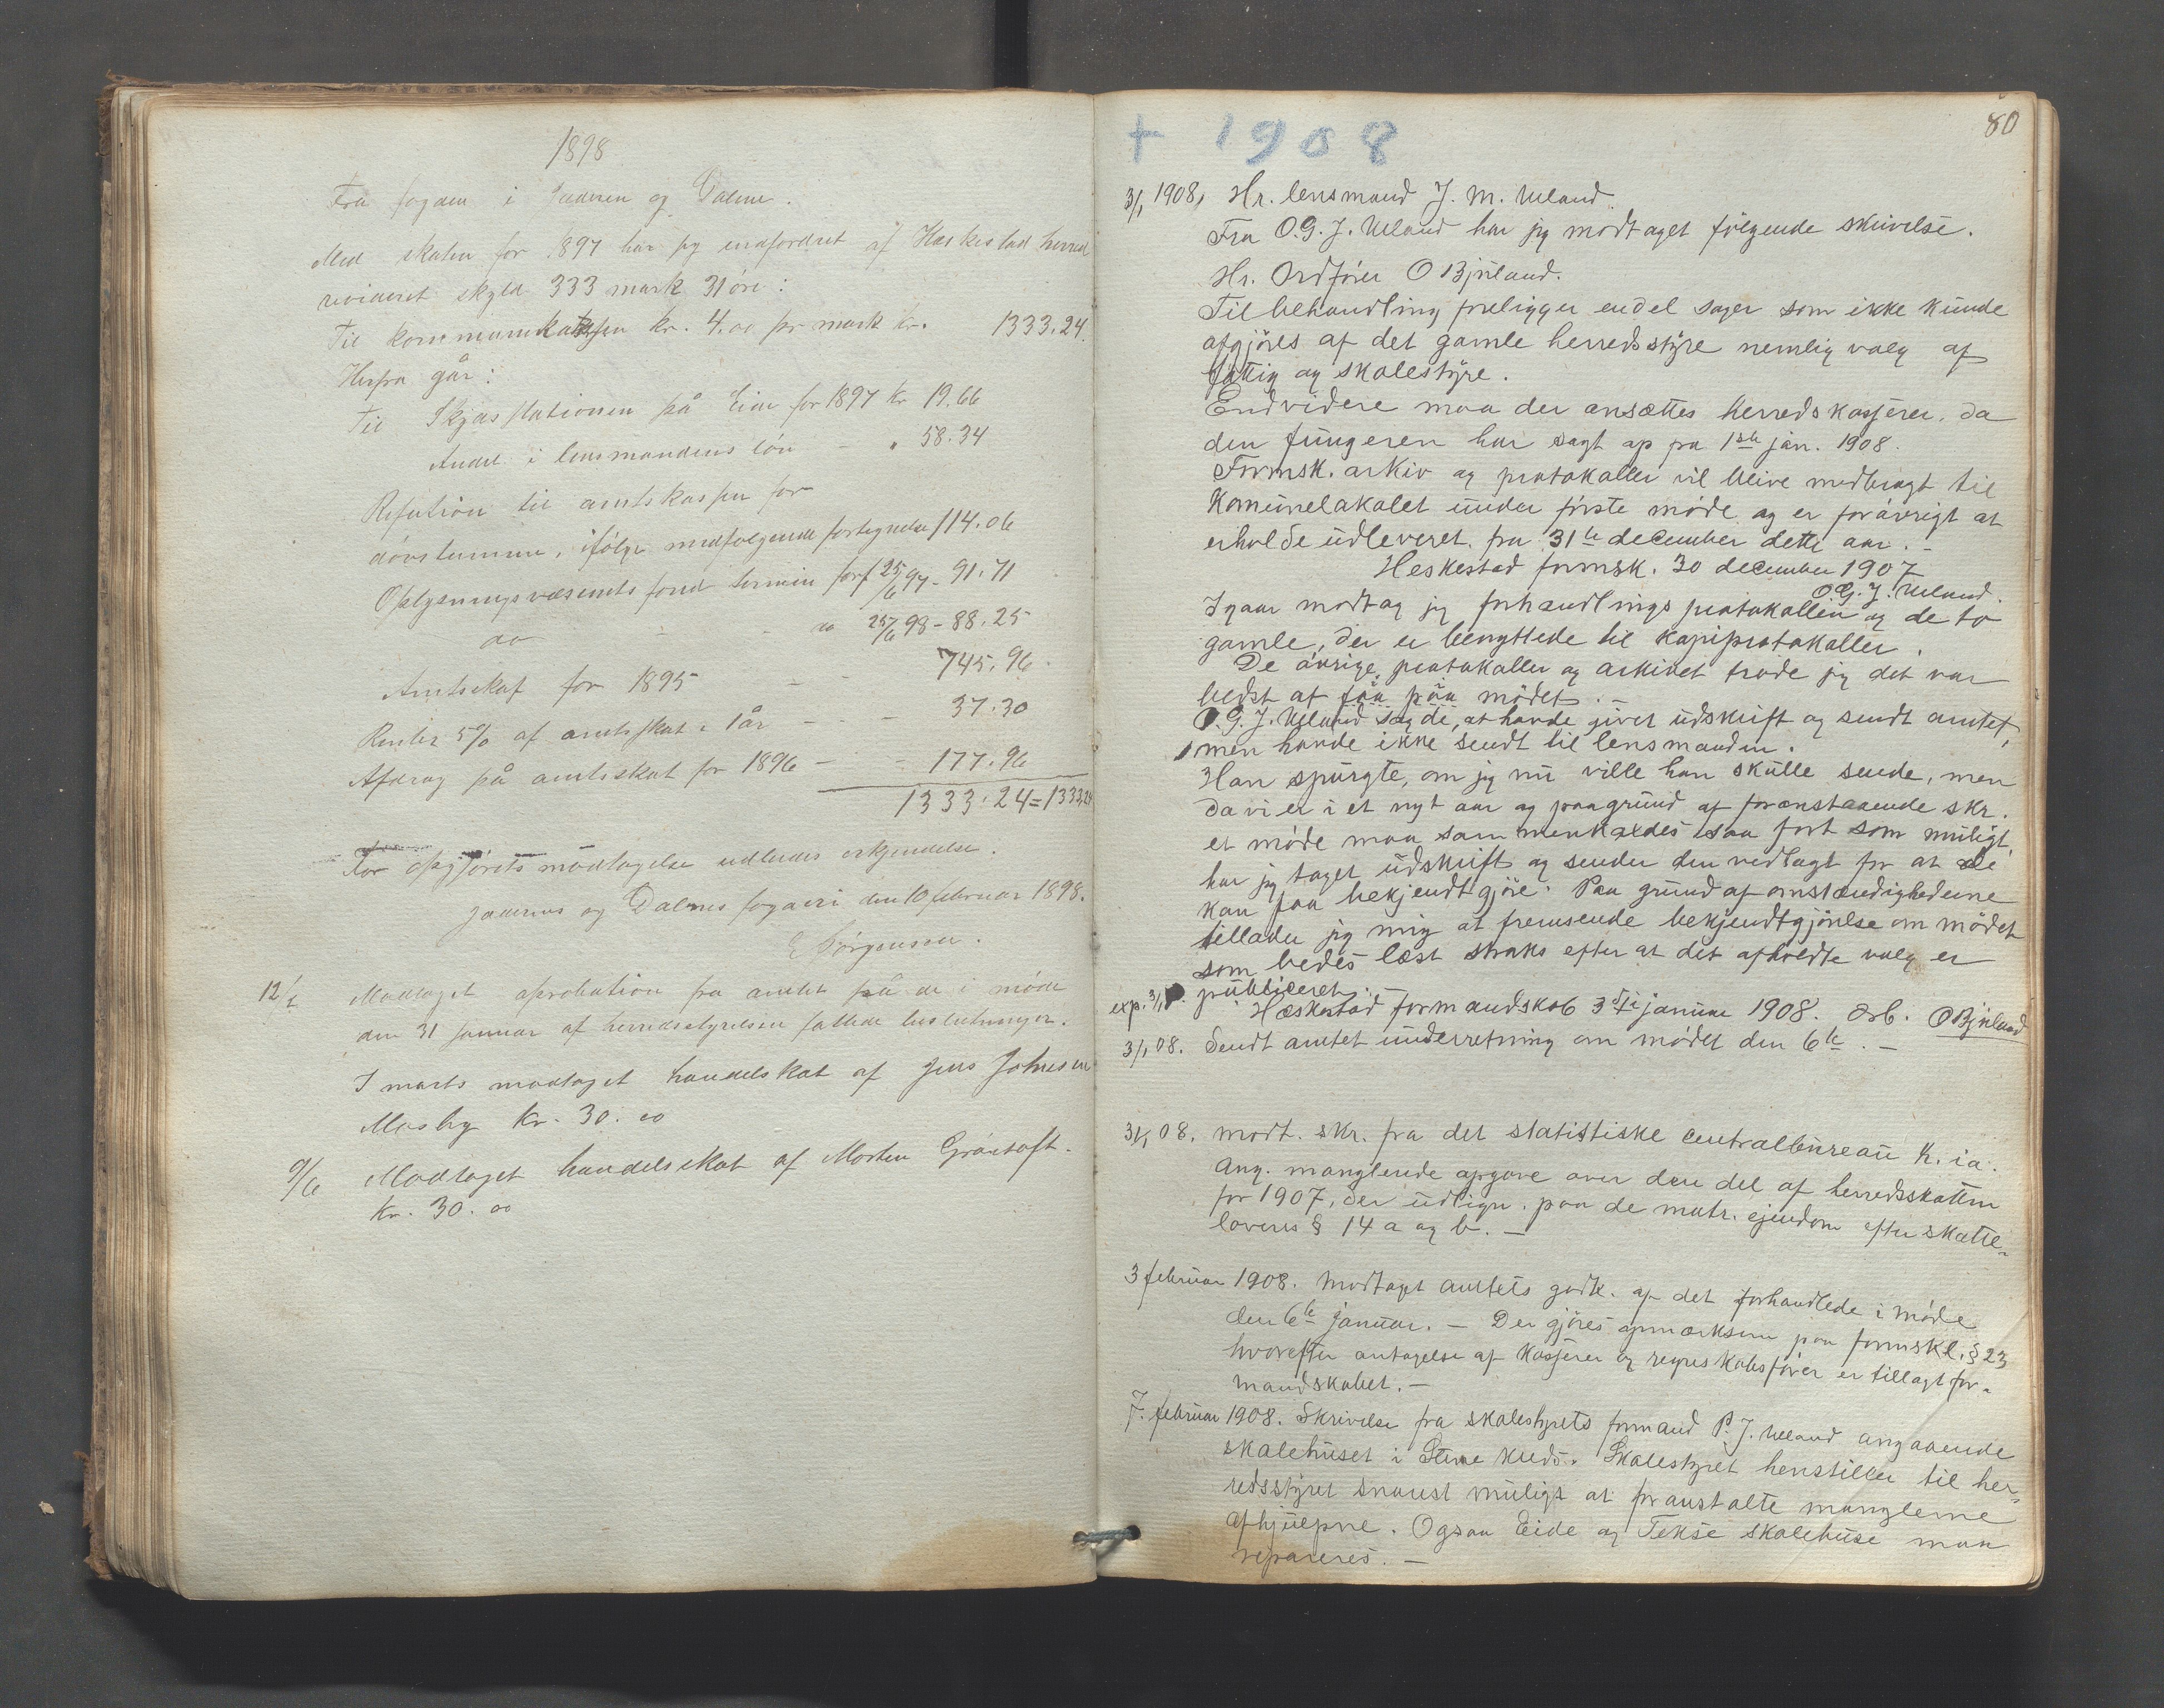 1898
Fra fogden i Jæderen og Dalene.
Med skaten for 1897 har jeg indfordret af Heskestad herred
revideret skyld 333 mark 31 öre:
Til kommunekassen kr. 4.00 pr mark kr. 1333.24.
Herfra går:
Til Skjæsstationen på Eide for 1897 kr 19.66
Andel i lensmandens lön - " 58.34
Refution til amtskassen for
dövstumme, ifölge medfølgende fortegnelse 114.06
Oplysningsvæsenets fond termin for 25/6 97 - 91.71
do - - do 25/6 98 - 88.25
Amtsskat for 1895 - - 745.96.
Renter 5% af amtsskat 1 år - - - 37.30
Afdrag på amtsskat for 1896 - - 177.96
1333.24=1333.24
For opgjörets modtagelse udbedes erkjendelse.
Jæderens og Dalenes fogderi den 10 februar 1898.
E Jörgensen.
12/2 Modtaget aprobation fra amtet på de i møde
den 31 januar af herredsstyrelsen fattede beslutninger.
I marts modtaget handelskat af Jens Johnsen
Mosby kr. 30.00
9/6 Modtaget handelsskat af Morten Gröntoft.
kr. 30.00
+ 1908
80
3/1 1908, Hr. lensmand J. M. Ueland.
Fra O.G.J. Ueland har jeg modtaget fölgende skrivelse.
Hr. Ordförer O Bjuland.
Til behandling foreligger endel sager som ikke kunde
afgjöres af det gamle herredsstyre nemlig valg af
fattig og skolestyre.
Endvidere maa der ansættes herredskasserer, da
den fungeren har sagt op fra 1ste jan. 1908.
Formsk. arkiv og protokoller vil blive medbragt til
Komunelokalet under förste möde og er forövrigt at
erholde udleveret fra 31te december dette aar. -
Heskestad formsk. 30 december 1907
O.G.J. Ueland.
Igaar modtog jeg forhandlings protokollen og de to
gamle, der er benyttede til kopiprotokoller.
De övrige protokoller og arkivet trode jeg det var
bedst at faa paa mödet. -
O.G.J. Ueland sagde, at havde givet udskrift og sendt amtet,
men havde ikke sendt til lensmanden.
Han spurgte, om jeg nu ville han skulle sende, men
da vi er i et nyt aar og paagrund af foranstaaende skr.
et möde maa sammenkaldes saa fort som muligt,
har jeg taget udskrift og sender den vedlagt for at De
kan faa bekjendtgjöre. Paa grund af omstændighederne
tillader jeg mig at fremsende bekjendtgjörelse om mödet
som bedes læst straks efter at det afholdte valg er
exp. 3/1 08. publiceret. -
Heskestad formandskab 3die januar 1908. Ærb. O Bjuland
3/1 08. Sendt amtet underretning om mödet den 6te. -
3/1 08. modt. skr. fra det statistiske centralbureau K.ia.
ang. manglende opgave over den del af herredsskatten
for 1907, der udlign. paa de matr. ejendom efter skatte-
lovens § 14 a og b. -
3 februar 1908. Modtaget amtets godk. af det forhandlede i möde
den 6te januar. - Der gjöres opmærksom paa formskl. § 23
hvorefter antagelse af kasserer og regnskabsförer er tillagt for-
mandskabet. -
7. februar 1908. Skrivelse fra skolestyrets formand P. J. Ueland angaaende
skolehuset i kreds. Skolestyret henstiller til her-
redsstyret snarest muligt at foranstalte manglerne
afhjulpne. Ogsaa Eide og Tekse skolehuse maa
repareres. -